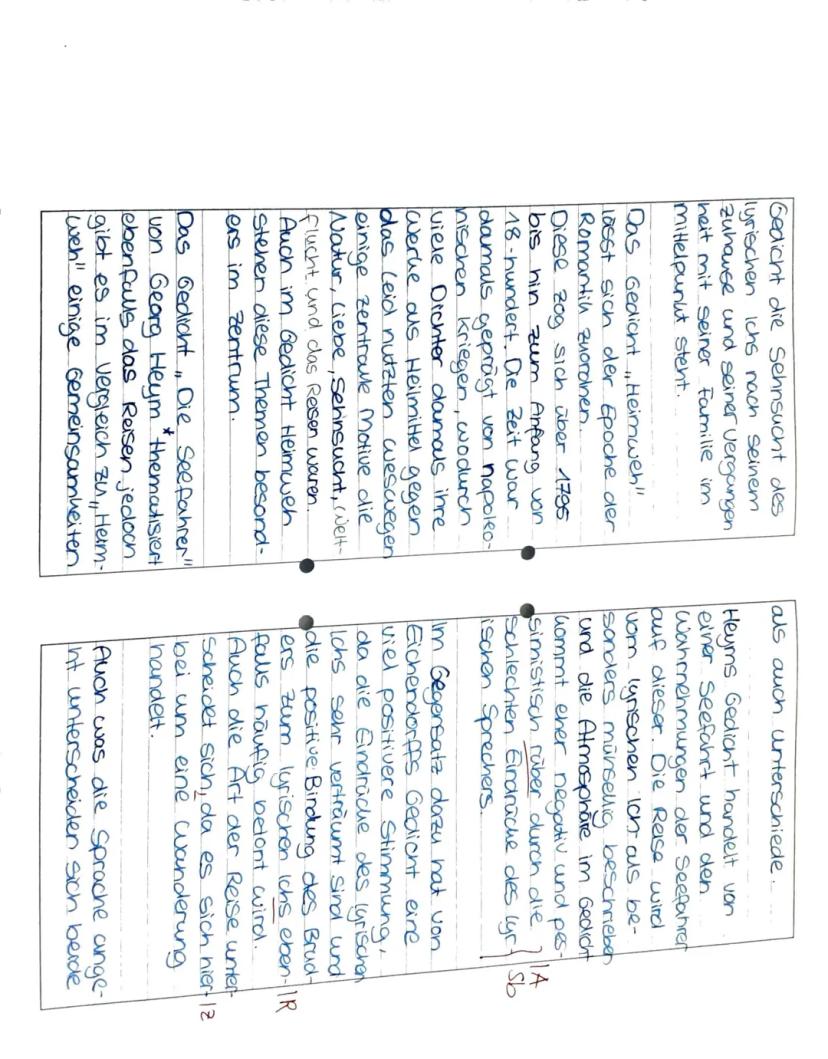 Gedicht die Sehnsucht des
lyrischen Ichs nach seinem
zuhause und seiner Vergangen
heit mit seiner Familie im
mittelpunkt steht.
Das Gedicht „Heimweh"
lässt sich der Epoche der
Romantik zuordnen.
Diese zog sich über 1795
bis hin zum Anfang von
18-hundert. Die Zeit war
damals geprägt von napoleo-
nischen Kriegen, wodurch
viele Dichter damals ihre
Werke als Heilmittel gegen
das Leid nutzten weswegen
einige zentrale Motive die
Natur, Liebe, Sehnsucht, Welt-
flucht und das Reisen waren.
Auch im Gedicht Heimweh
stehen diese Themen besond-
ers im Zentrum.
Das Gedicht „Die Seefahrer"
von Georg Heym * thematisiert
ebenfalls das Reisen, jedoch
gibt es im Vergleich zu „Heim-
weh" einige Gemeinsamkeiten
als auch unterschiede.
Heyms Gedicht handelt von
einer Seefahrt und den
Wahrnehmungen der Seefahrer
auf dieser. Die Reise wird
vom lyrischen Ich als be-
sonders mühselig beschrieben
und die Atmosphäre im Gedicht
kommt eher negativ und pes-
simistisch rüber durch die IA
schlechten Eindrücke des lyr- Sb
ischen Sprechers.
Im Gegensatz dazu hat von
Eichendorffs Gedicht eine
viel positivere Stimmung,
da die Eindrücke des lyrischen
Ichs sehr verträumt sind und
die positive Bindung des Brud-
ers zum lyrischen Ichs eben- IR
falls häufig betont wird.
Auch die Art der Reise unter-
scheidet sich, da es sich hier- IZ
bei um eine Wanderung
handelt.
Auch was die Sprache ange-
ht unterscheiden sich beide